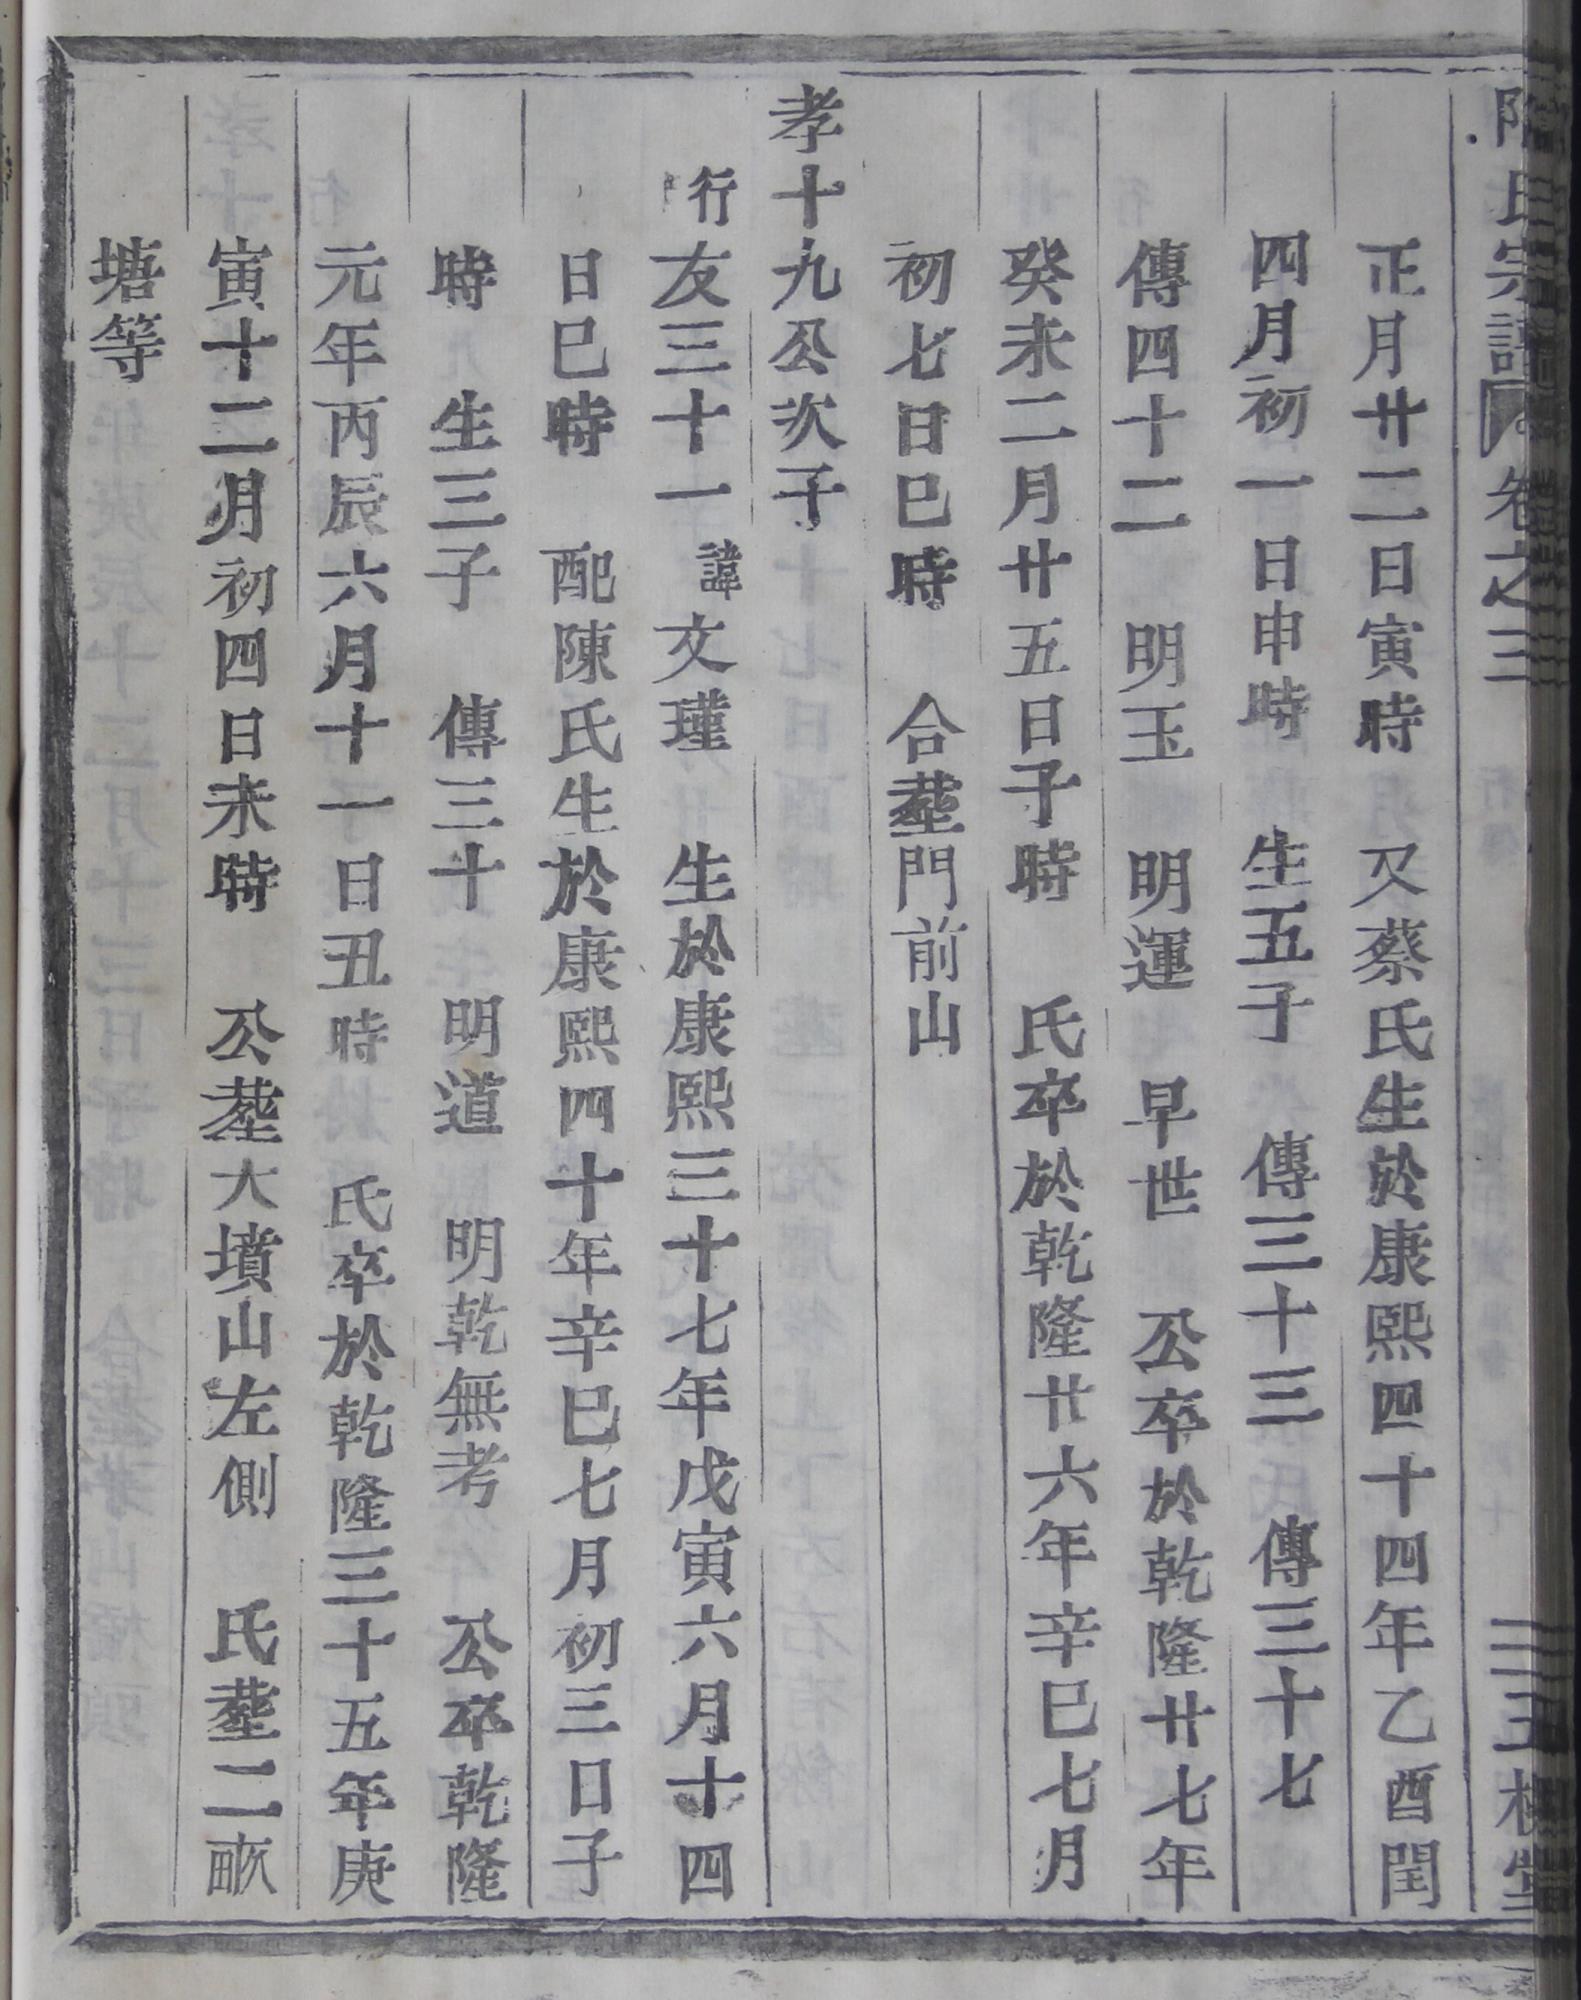 氏宗譜 卷之三
正月廿二日寅時 又蔡氏生於康熙四十四年乙酉閏
四月初一日申時 生五子 傳三十三 傳三十七
傳四十二 明玉 明運 早世 公卒於乾隆廿七年
癸未二月廿五日子時 氏卒於乾隆廿六年辛巳七月
初七日巳時 合塟門前山
孝十九公次子
行友三十一 諱文瑾 生於康熙三十七年戊寅六月十四
日巳時 配陳氏生於康熙四十年辛巳七月初三日子
時 生三子 傳三十 明道 明乾無考 公卒乾隆
元年丙辰六月十一日丑時 氏卒於乾隆三十五年庚
寅十二月初四日未時 公塟大墳山左側 氏塟二畝
塘等